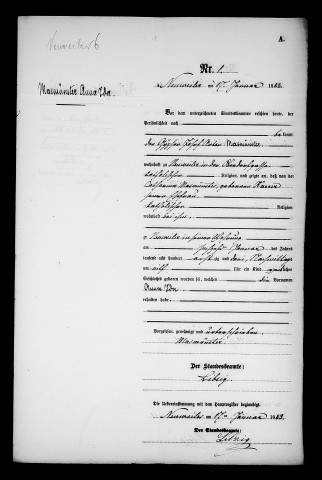 Neuweiler 6
A.
Nr. 1.
Masmünster Anna Ida.
Neuweiler, am 17. Januar 1883.
Vor dem unterzeichneten Standesbeamten erschien heute, der
Persönlichkeit nach
be kannt,
Josef Masmünster
wohnhaft zu Neuweiler in der
katholischer Religion, und zeigte an, daß von der
Catharina Masmünster, geborenen
seiner Ehefrau
katholischer Religion
wohnhaft bei ihm
zu Neuweiler in seiner Wohnung
am Januar des Jahres
tausend acht hundert achtzig und drei, Nachmittags
um Uhr ein Kind weiblichen
Geschlechts geboren worden sei, welches die Vornamen
Anna Ida
erhalten habe.
Vorgelesen, genehmigt und unterschrieben
Masmünster
Der Standesbeamte:
Die Uebereinstimmung mit dem Hauptregister beglaubigt.
Neuweiler, am 17ten Januar 1883.
Der Standesbeamte: